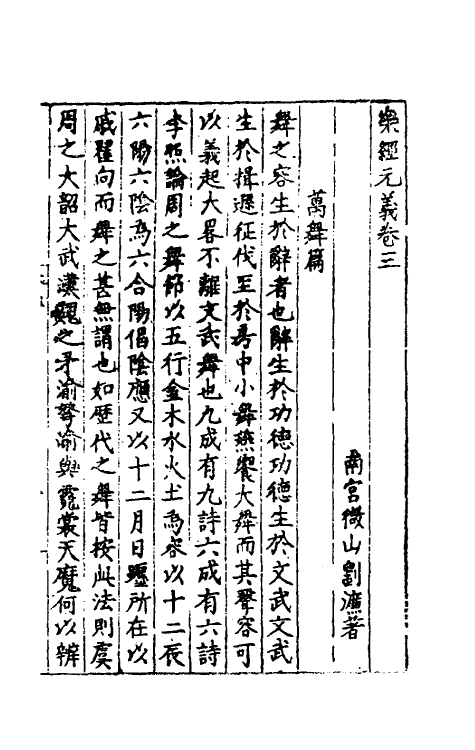 樂經元義卷三
南宮微山劉濂著
萬舞篇
舞之容生於辭者也辭生於功德功德生於文武文武
生於揖遜征伐至於房中小舞燕饗大舞而其聲容可
以義起大畧不離文武舞也九成有九詩六成有六詩
李照論周之舞節以五行金木水火土為容以十二辰
六陽六陰為六合陽倡陰應又以十二月日躔所在以
戚翟向而舞之甚無謂也如歷代之舞皆按此法則虞
周之大韶大武漢魏之矛渝弩渝與霓裳天魔何以辨